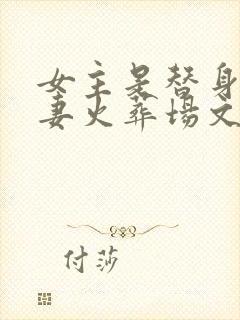 女主是替身
妻火葬场文
付莎